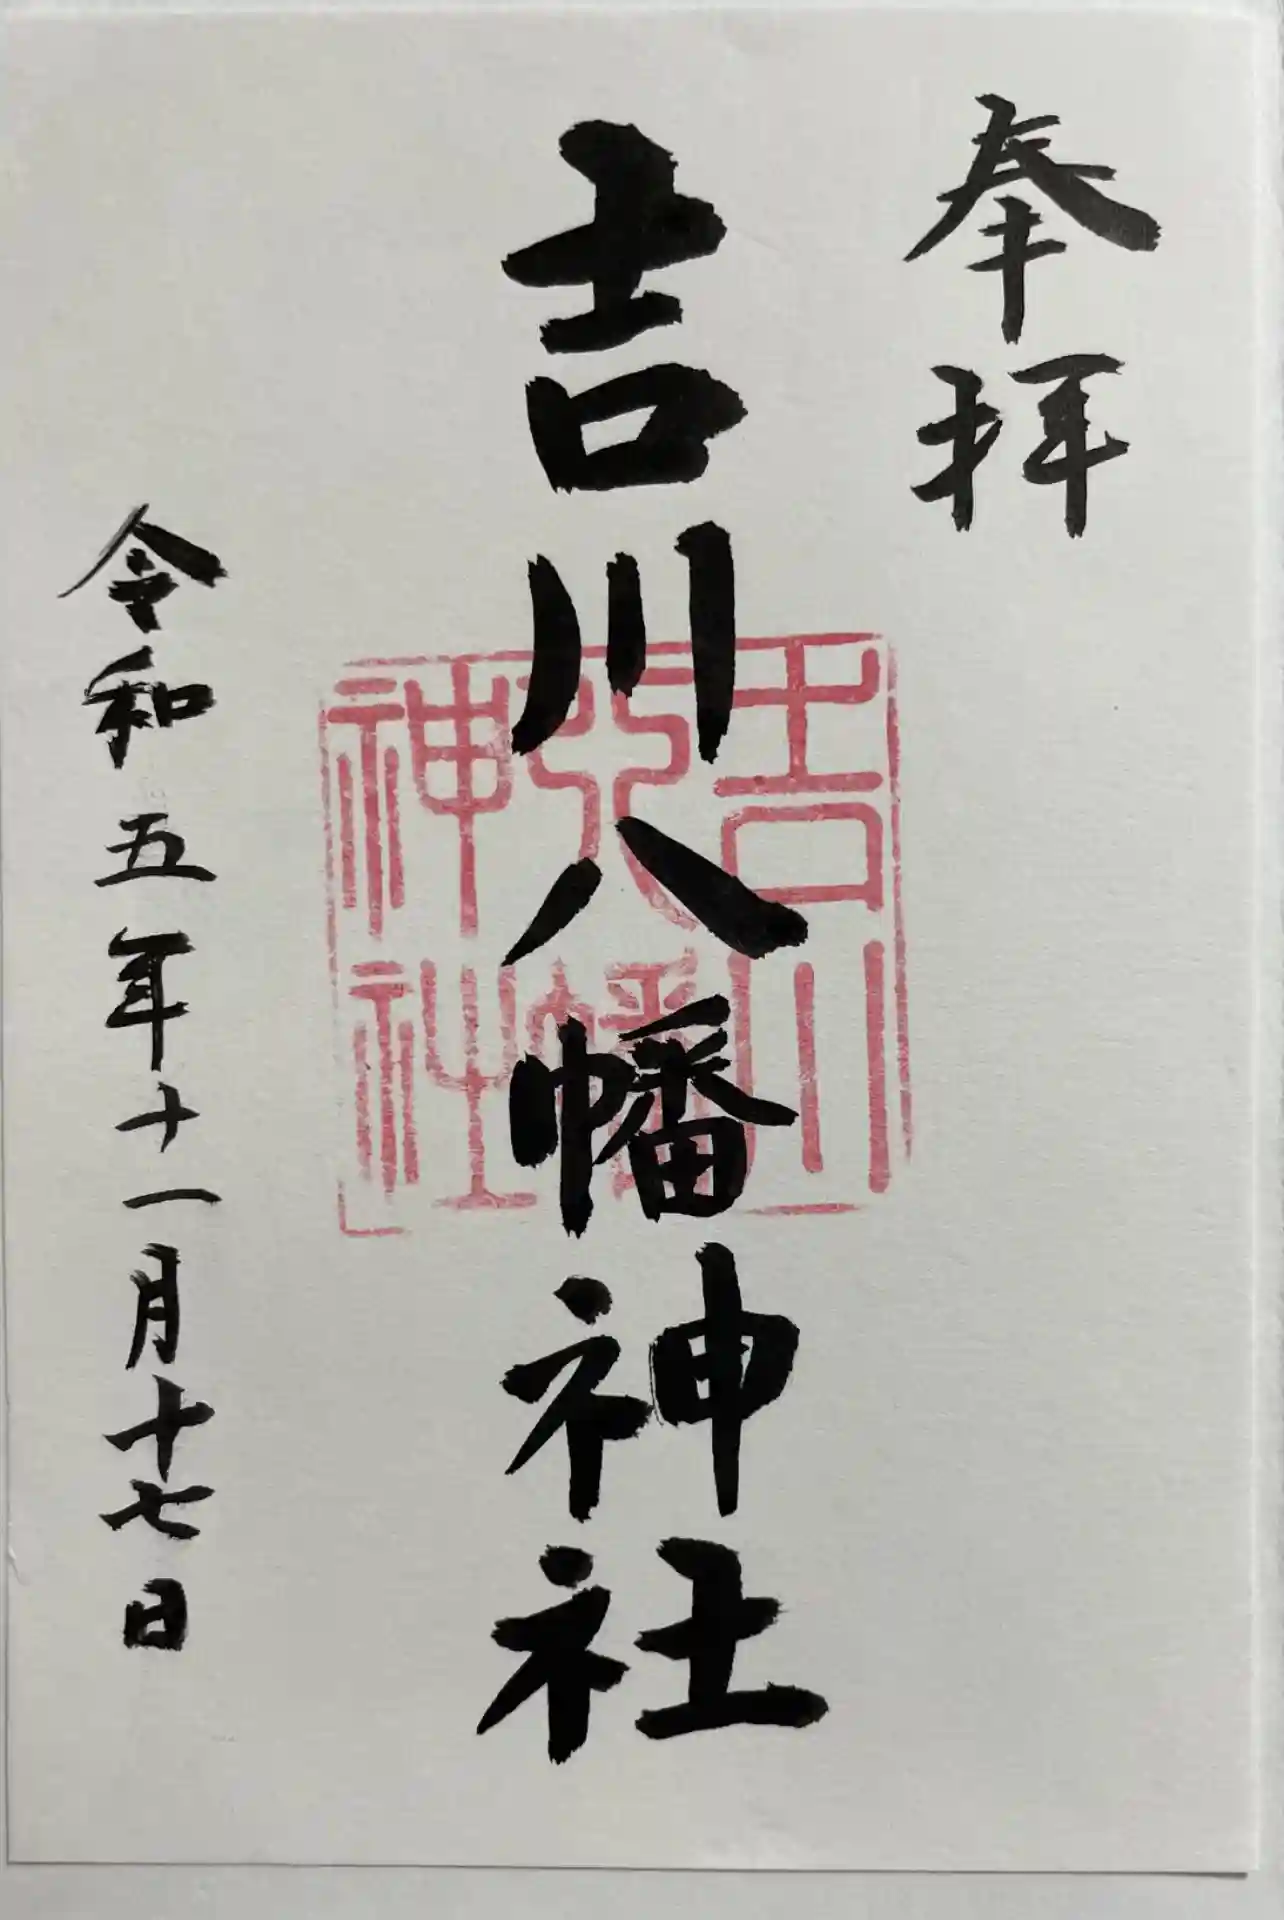 奉拝
吉川八幡神社
吉川
八幡
神社
令和五年十一月十七日